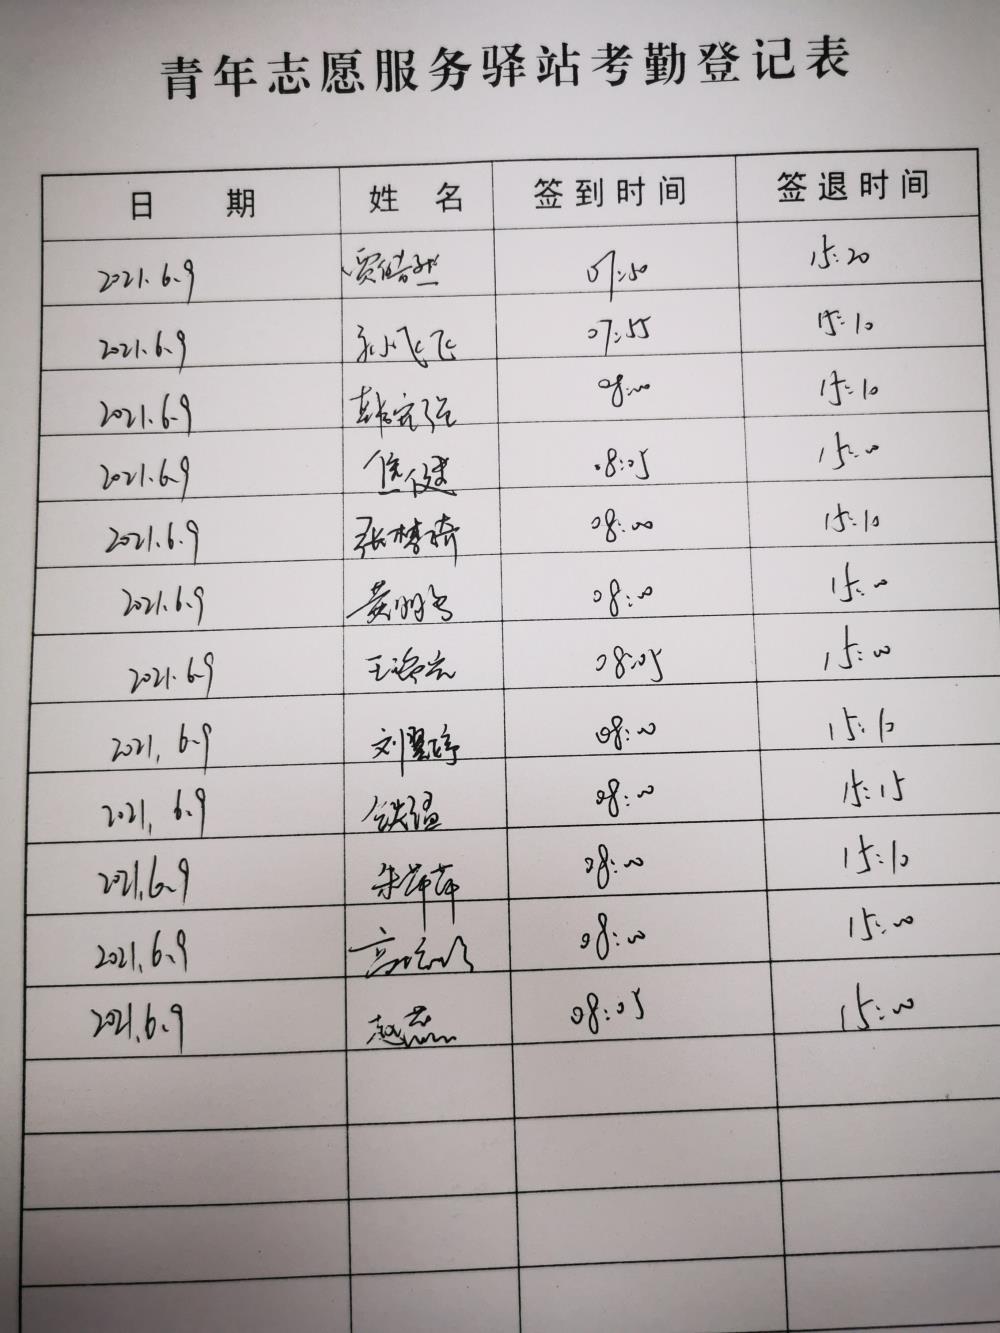 青年志愿服务驿站考勤登记表
日 期 姓 名 签到时间 签退时间
2021.6.9 贾皓然 07:50 15:20
2021.6.9 孙飞飞 07:55 15:10
2021.6.9 韩宝强 08:00 15:10
2021.6.9 焦健 08:05 15:00
2021.6.9 张梦琦 08:00 15:10
2021.6.9 黄 08:00 15:00
2021.6.9 王 08:05 15:00
2021.6.9 刘翠婷 08:00 15:10
2021.6.9 08:00 15:15
2021.6.9 朱萍萍 08:00 15:10
2021.6.9 高 08:00 15:00
2021.6.9 赵燕 08:05 15:00